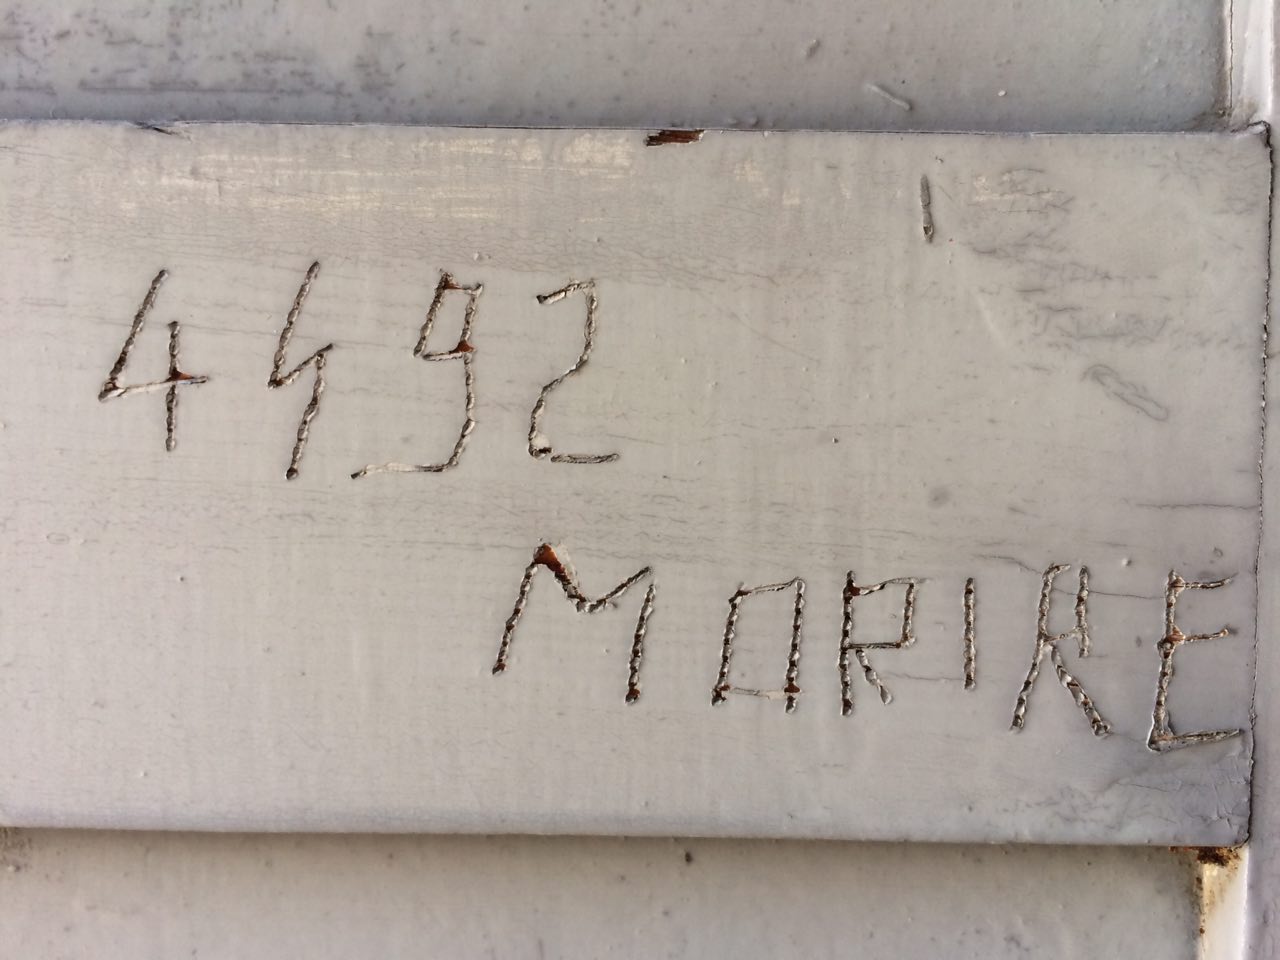 4492
MORIRE